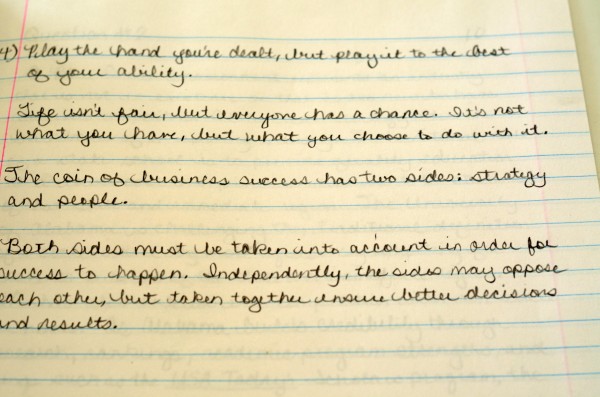 4) Play the hand you're dealt, but play it to the best
of your ability.
Life isn't fair, but everyone has a chance. It's not
what you have, but what you choose to do with it.
The coin of business success has two sides: strategy
and people.
Both sides must be taken into account in order for
success to happen. Independently, the sides may oppose
each other, but taken together ensure better decisions
and results.